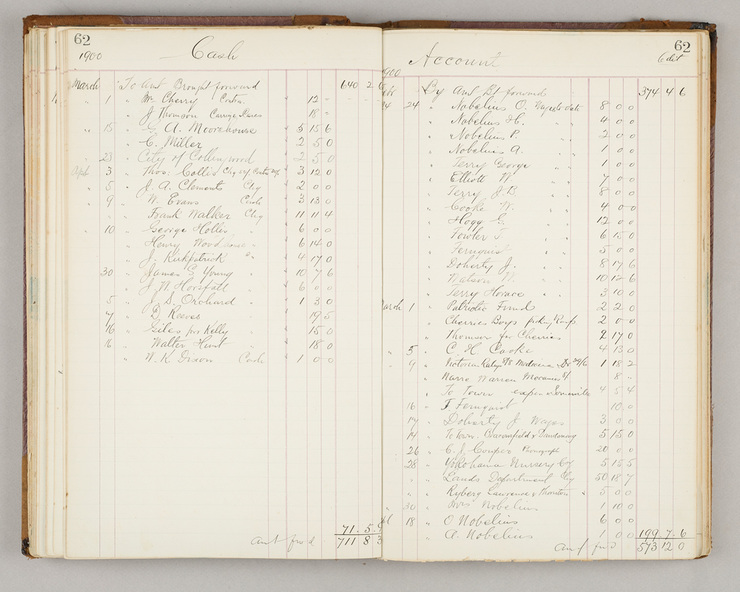 62
1900 Cash
March To Amt Brought forward 640 2
" 1 " W. Cherry 12 –
" J Thomson 18 –
" 15 " G A Moorehouse " 5 15 6
" C. Miller 2 5 0
" 23 City of Collingwood 2 5 0
April 3 " Thos. Collie " 3 12 0
" 5 " J. A. Clements Chq 2 0 0
" 9 " W. Evans Cash 3 13 0
" Frank Walker Chq 11 11 4
" 10 " George Hollis " 6 0 0
" Henry " 6 14 0
" J. Kirkpatrick " 4 17 0
30 " James G Young " 10 7 6
" J. W Horsfall " 6 0 0
5 " J. S. Orchard " 1 3 0
7 " D. Reeves 19 5
16 " Giles per Kelly " 15 0
16 " Walter Hunt " 18 0
" W. K Dixon Cash 1 0 0
71 . 5
Amt fwd 711 8 3
62
1900 Account Credit
By Amt Bt forward 374 4 6
24 " Nobelius O. 8 0 0
" Nobelius H. 4 0 0
" Nobelius P. 2 0 0
" Nobelius A. 1 0 0
" Terry George 1 0 0
" Elliott W 7 0 0
" Terry J B 8 0 0
" Cooke W. 4 0 0
" Hogg G. 12 0 0
" Fowler J 6 15 0
" Fernquist 5 0 0
" Doherty J. 8 17 6
" Watson W. 10 12 6
" Terry Horace 3 10 0
March 1 " Patriotic Fund 2 2 0
" Cherries Boys 2 0 0
" Thomson for Cherries 2 17 0
" 5 " C. H Cooke 4 13 0
" 9 " 1 18 2
" 8 –
" To Town 4 5 4
16 " J. Fernquist 10 0
17 " Doherty J Wages 3 0 0
19 " To Town 5 15 0
26 " C. J. Cowper 20 0 0
28 " Yokohama Nursery Coy 5 15 5
" Lands Department 50 18 7
" Ryberg Lawrence & Thornton 5 0 0
" 30 " Mrs Nobelius 1 10 0
18 " O Nobelius 6 0 0
" A. Nobelius 1 0 0 199 . 7 . 6
Amt fwd 573 12 0